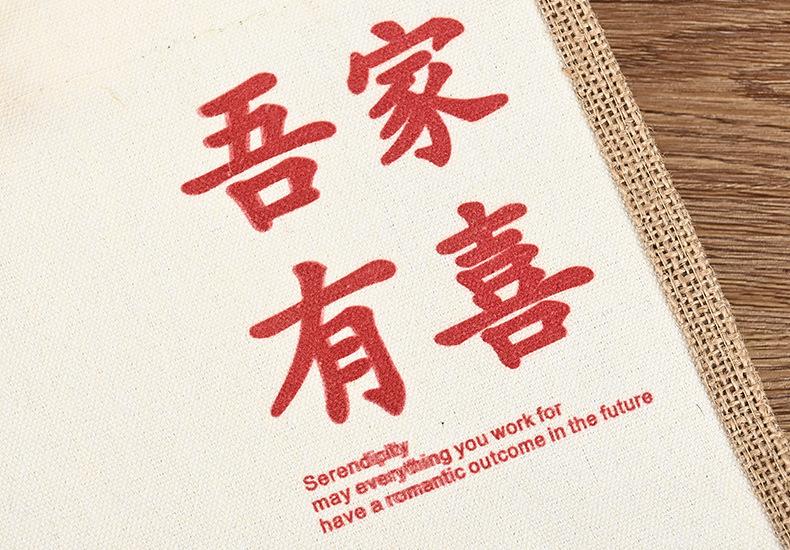 吾家
有喜
Serendipity
may everything you work for
have a romantic outcome in the future